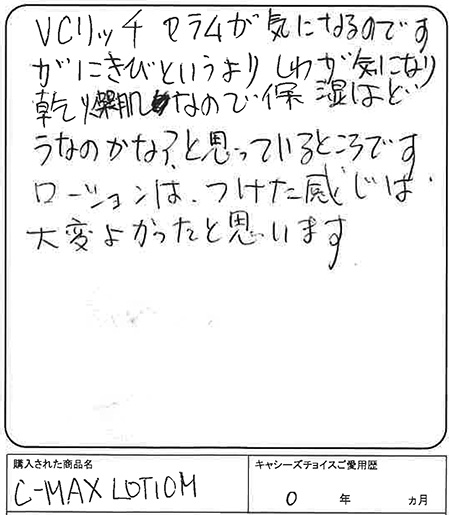 VCリッチセラムが気になるのです
がにきびというよりしわが気になり
乾燥肌なので保湿はど
うなのかな?と思っているところです
ローションは、つけた感じは、
大変よかったと思います
購入された商品名
C-MAX LOTION
キャシーズチョイスご愛用歴
0 年 ヵ月